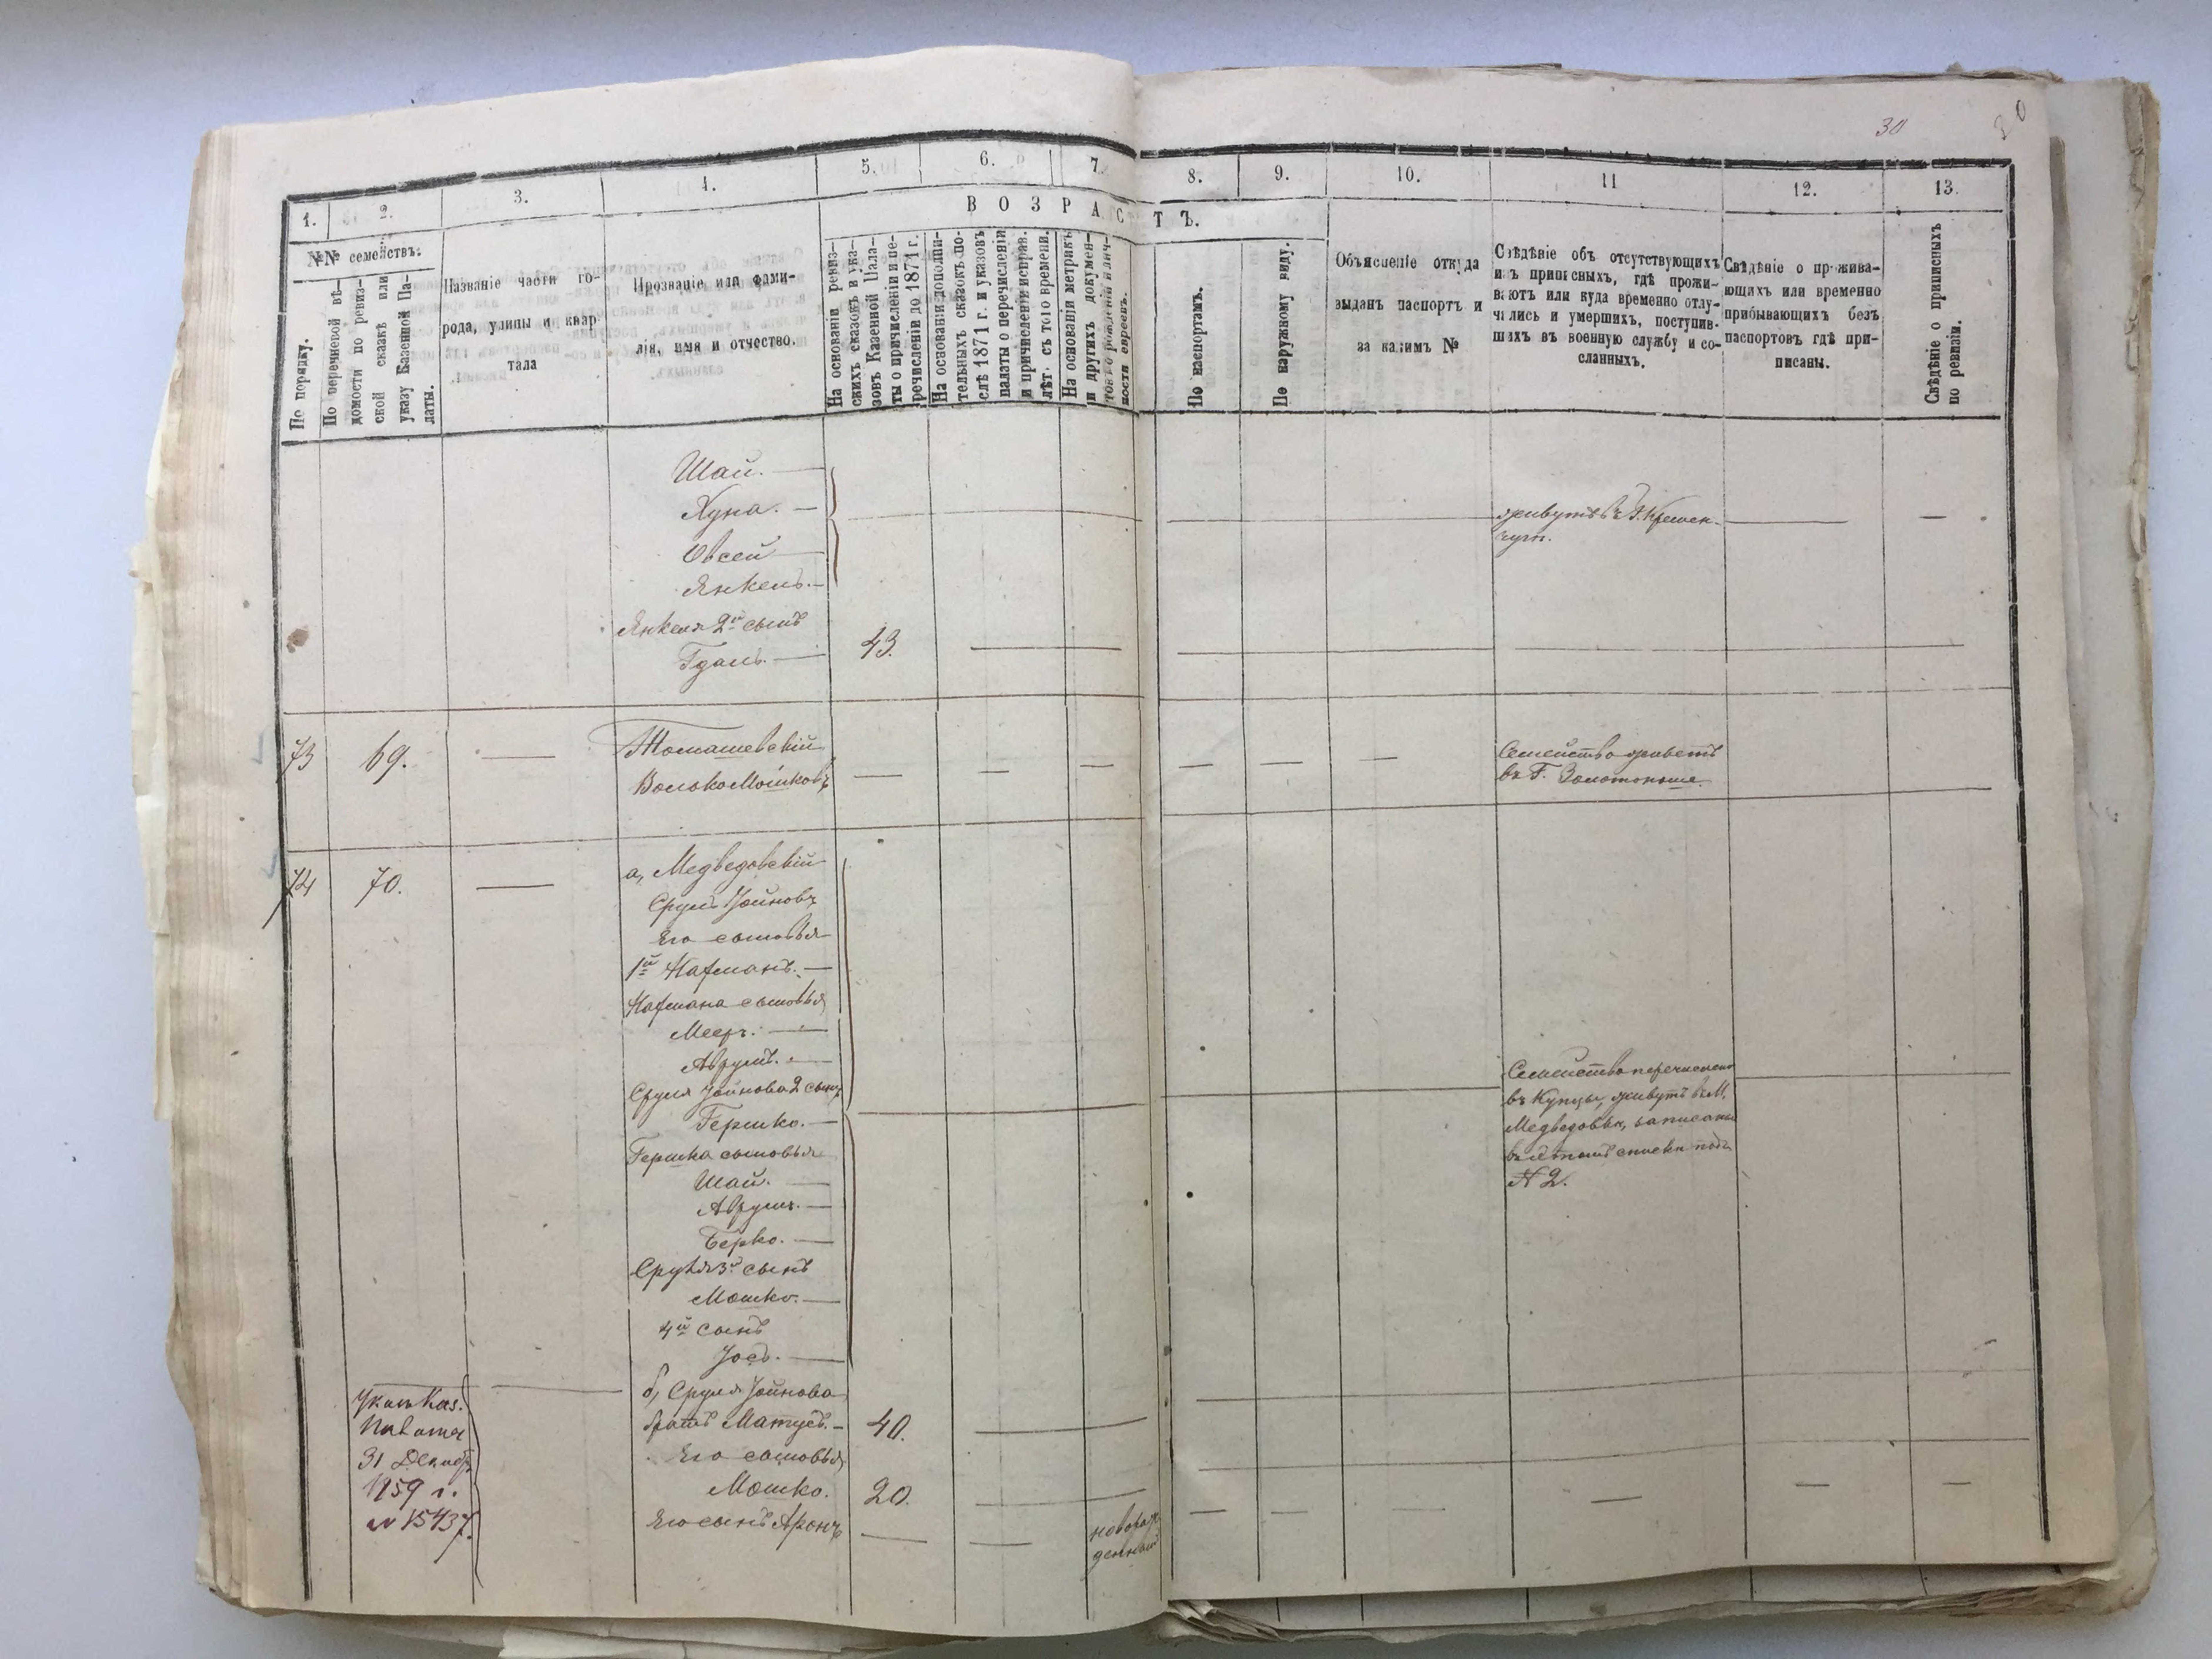 30
30
1.
2.
3.
4.
5.
6.
7.
8.
9.
10.
11
12.
13.
ВОЗРАСТЪ.
№№ семействъ:
По порядку.
По перечневой вѣ-
домости по ревиз-
ской сказкѣ или
указу Казенной Па-
латы.
Названіе части го-
рода, улицы и квар-
тала
Прозваніе или фами-
лія, имя и отчество.
На основаніи ревиз-
скихъ сказокъ и ука-
зовъ Казенной Пала-
ты о причисленіи и пе-
речисленіи до 1871 г.
На основаніи дополни-
тельныхъ сказокъ по-
слѣ 1871 г. и указовъ
палаты о перечисленіи
и причисленіи исправ.
лѣт. съ того времени.
На основаніи метрикъ
и другихъ докумен-
товъ о рожденіи и лич-
ности евреевъ.
По паспортамъ.
По наружному виду.
Объясненіе откуда
выданъ паспортъ и
за какимъ №
Свѣдѣніе объ отсутствующихъ
изъ приписныхъ, гдѣ прожи-
ваютъ или куда временно отлу-
чились и умершихъ, поступив-
шихъ въ военную службу и со-
сланныхъ.
Свѣдѣніе о прожива-
ющихъ или временно
прибывающихъ безъ
паспортовъ гдѣ при-
писаны.
Свѣдѣніе о приписныхъ
по ревизіи.
Шай. —
Хуна. —
Овсей —
Янкель. —
живутъ въ Г. Кремен-
чугѣ.
Янкеля 2й сынъ
Гдаль. — 43.
73 69. — Томашевскій
Волько Мошковъ
Семейство живетъ
въ Г. Золотоноше.
74 70. — а, Медведовскій
Сруль Хоиновъ
Его сыновья
1й Нахманъ. —
Нахмана сыновья
Мееръ. —
Аврумъ. —
Сруля Хоинова 2 сынъ
Гершко. —
Гершка сыновья
Шай. —
Аврумъ. —
Берко. —
Сруля 3й сынъ
Мошко. —
4й сынъ
Іось. —
Семейство перечислено
въ Купцы, живутъ въ М.
Медведовки, записаны
въ етомъ списки подъ
№ 2.
Указъ Каз.
Палаты
31 Декабр.
1859 г.
№ 15437.
б, Сруля Хоинова
братъ Матусъ. — 40.
Его сыновья
Мошко. 20.
Его сынъ Аронъ —
новорож
денный